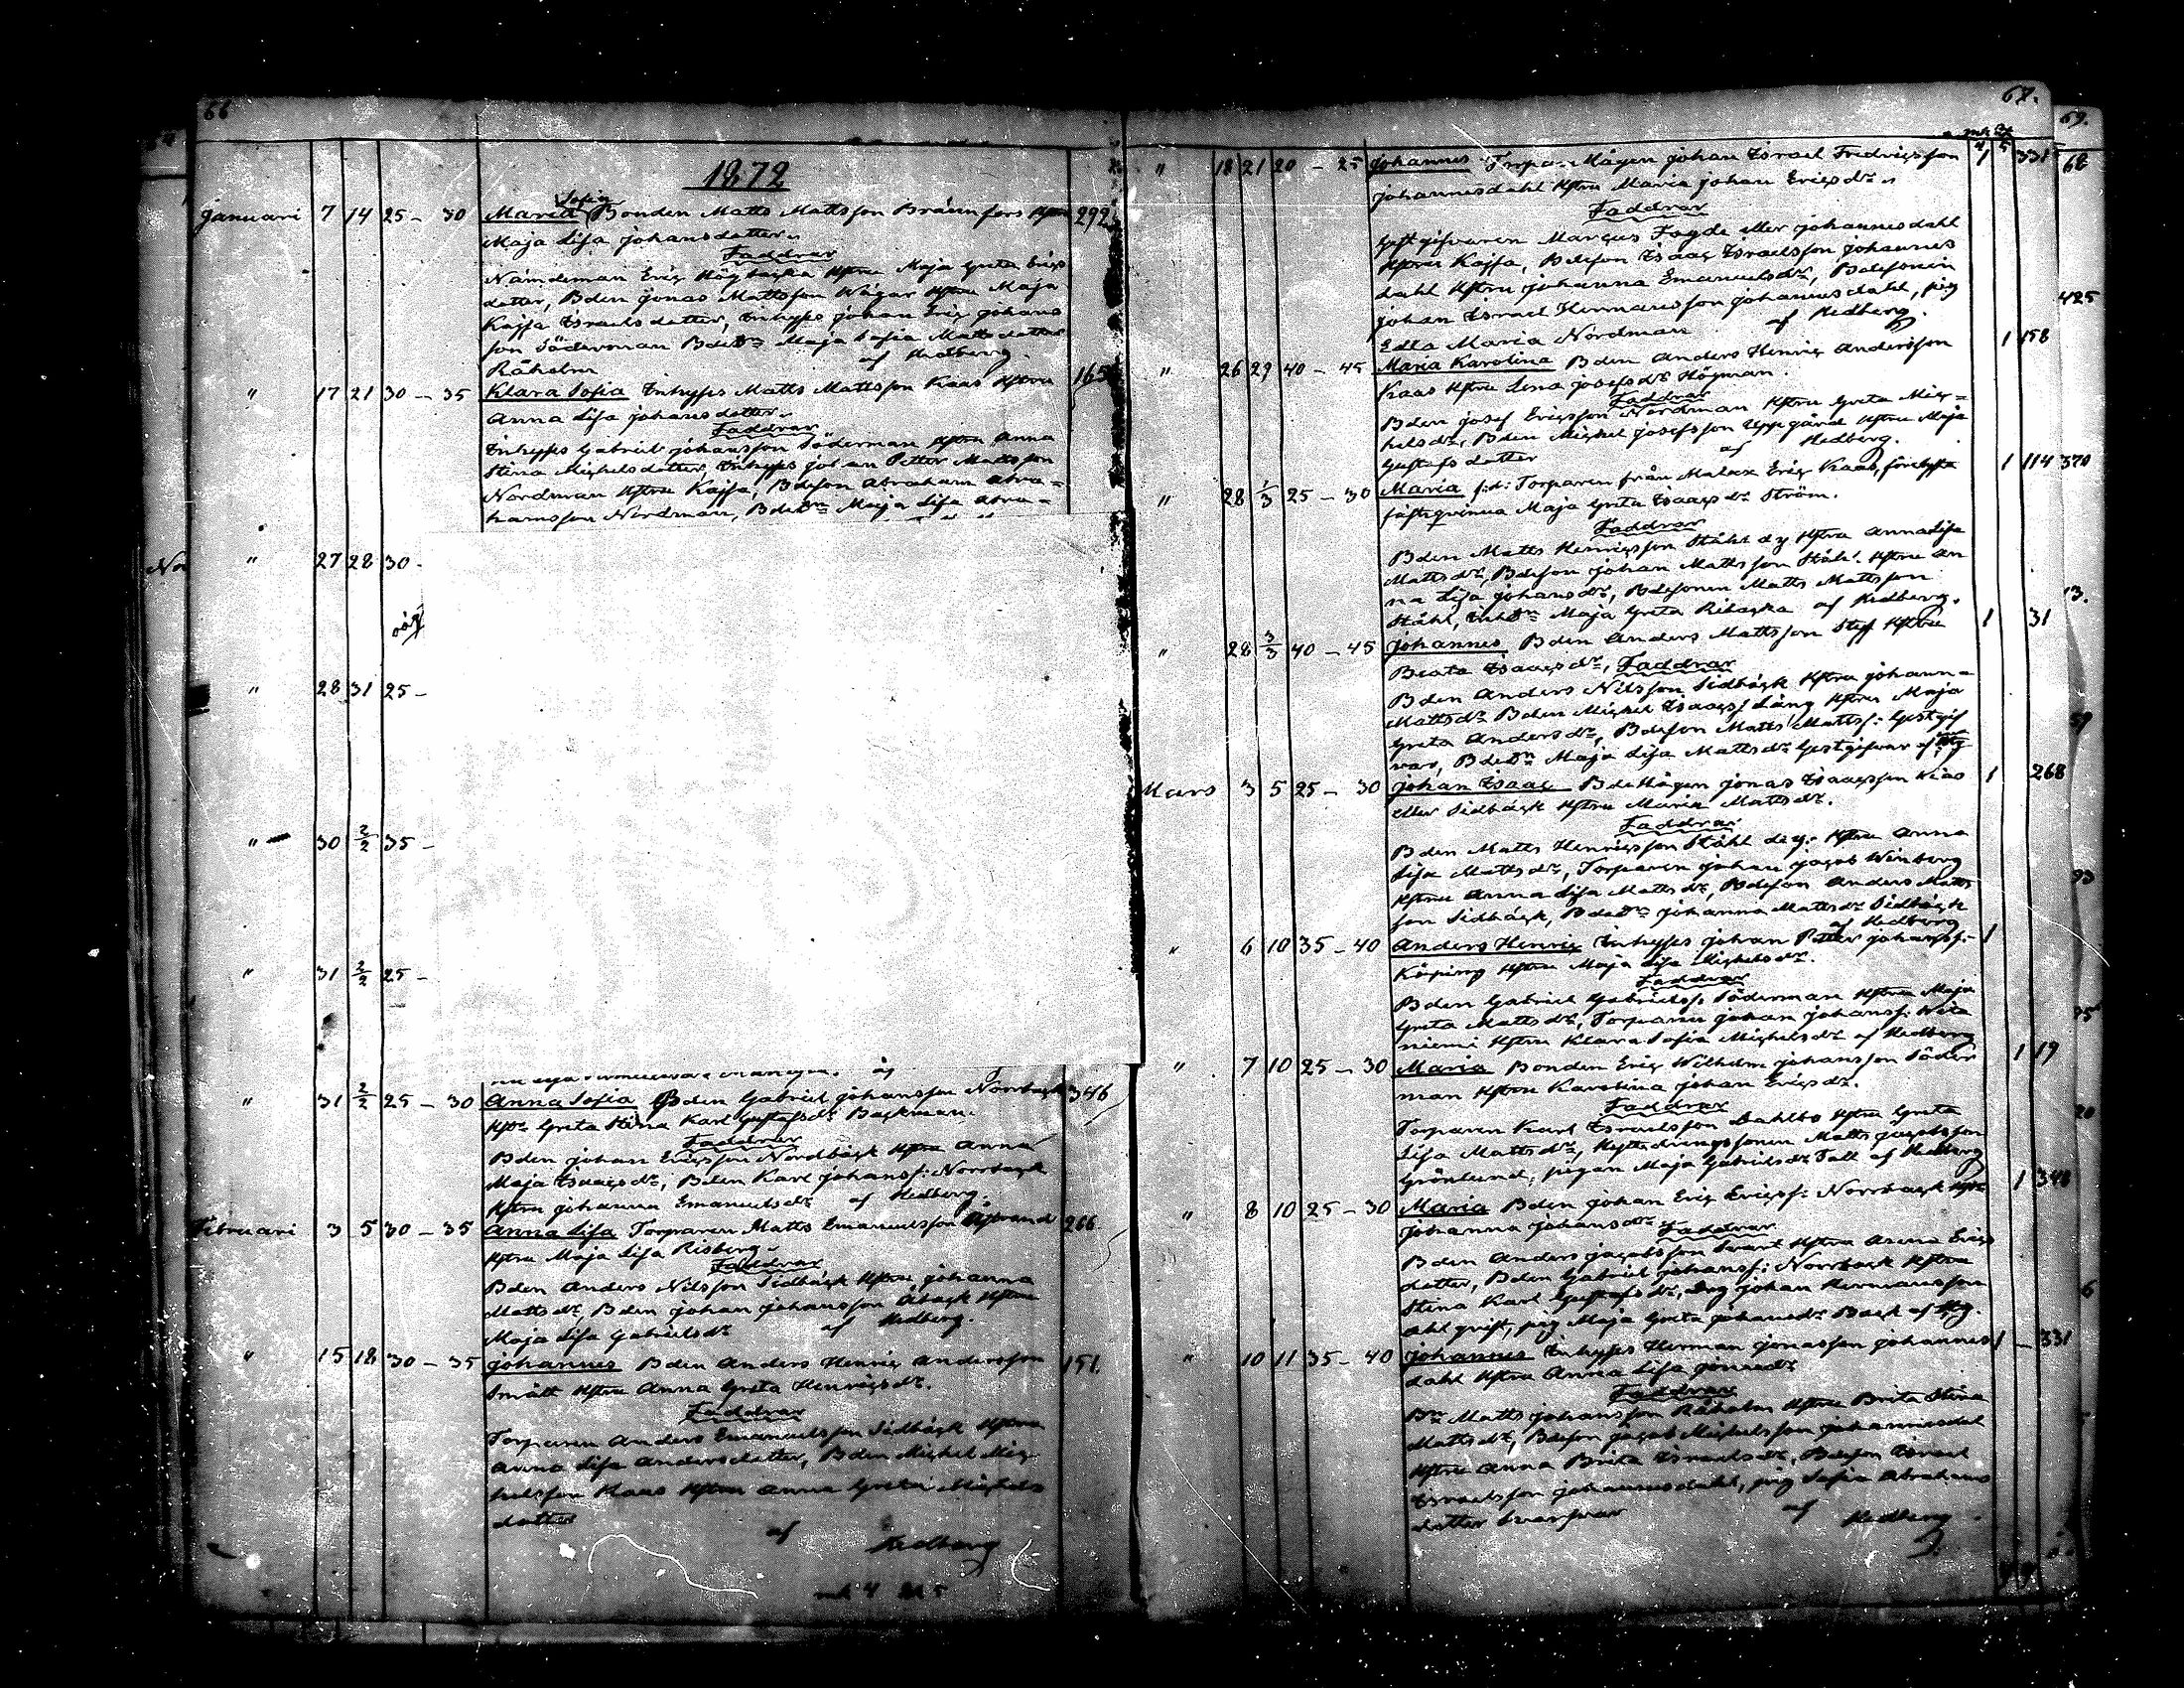 66
1872
Januari 7 14 25 – 30 Maria Sofia Bonden Matts Mattsson Brännfors Hstru 292
Maja Lisa Johansdotter.
Faddrar
Nämdeman Eric Högbacka Hstru Maja Greta Erics
dotter, Bden Jonas Mattsson Wägar Hstru Maja
Kajsa Israelsdotter, Inhyses Johan Eric Johans
son Söderman BdeDr Maja Sofia Mattsdotter
Råholm af Hedberg.
" 17 21 30 – 35 Klara Sofia Inhyses Matts Mattsson Kaas Hstru 165
Anna Lisa Johansdotter.
Faddrar
Inhyses Gabriel Johansson Söderman Hstru Anna
Stina Michelsdotter, Inhyses Johan Petter Mattsson
Nordman Hstru Kajsa, Bdeson Abraham Abra=
hamsson Nordman, BdeDr Maja Lisa Abra=
" 27 28 30
" 28 31 25 –
" 30 2/2 35 –
" 31 2/2 25 –
" 31 2/2 25 – 30 Anna Sofia Bden Gabriel Johansson Norrback 346
Hstr Greta Stina Karl Gustafsdr Backman.
Faddrar
Bden Johan Ericsson Nordbäck Hstru Anna
Maja Isaacsdr, Bden Karl Johanss: Norrback
Hstru Johanna Emanuelsdr af Hedberg.
Februari 3 5 30 – 35 Anna Lisa Torparen Matts Emanuelsson 266
Hstru Maja Lisa Risberg.
Faddrar
Bden Anders Nilsson Sidbäck Hstru Johanna
Mattsdr, Bden Johan Johansson Åback Hstru
Maja Lisa Gabrielsdr af Hedberg.
" 15 18 30 – 35 Johannes Bden Anders Henric Andersson 151.
Smått Hstru Anna Greta Henricsdr.
Faddrar
Torparen Anders Emanuelsson Sidbäck Hstru
Anna Lisa Andersdotter, Bden Michel Mic
helsson Kaas Hstru Anna Greta Michels
dotter
af Hedberg
67.
" 18 21 20 – 25 Johannes Torpa=Mågen Johan Israel Fredricsson 1 331
Johannesdahl Hstru Maria Johan Ericsdr.
Faddrar
Gestgifvaren Marcus Fogde eller Johannesdahl
Hstru Kajsa, Bdeson Isaac Israelsson Johannes
dahl Hstru Johanna Emanuelsdr, Bdesonen
Johan Israel Hermansson Johannesdahl, pig
Edla Maria Nordman af Hedberg.
" 26 29 40 – 45 Maria Karolina Bden Anders Henric Andersson 1 158
Kaas Hstru Lena Josefsdr Högman.
Faddrar
Bden Josef Ericsson Nordman Hstru Greta Mic=
helsdr, Bden Michel Josefsson Uppgård Hstru Maja
Gustafsdotter af Hedberg.
" 28 1/3 25 – 30 Maria f:d: Torparen från Malax Eric Kaas, 1 114
fästqvinna Maja Greta Isaacsdr Ström.
Faddrar
Bden Matts Henricsson Ståhl dy Hstru Anna Lisa
Mattsdr, Bdeson Johan Mattsson Ståhl Hstru An
na Lisa Johansdr, Bdesonen Matts Mattsson
Ståhl, InhDr Maja Greta Ribacka af Hedberg.
" 28 3/3 40 – 45 Johannes Bden Anders Mattsson Stef Hstru 1 31
Beata Isaacsdr, Faddrar
Bden Anders Nilsson Sidbäck Hstru Johann=
Mattsdr Bden Michel Isaacs: Lång Hstru Maja
Greta Andersdr, Bdeson Matts Mattss: Gestgif
var, BdeDr Maja Lisa Mattsdr Gestgifvar af
Mars 3 5 25 – 30 Johan Isaac BdeMågen Jonas Isaacsson 1 268
eller Sidbäck Hstru Maria Mattsdr.
Faddrar
Bden Matts Henricsson Ståhl dy. Hstru Anna
Lisa Mattsdr, Torparen Johan Jacob Winberg
Hstru Anna Lisa Mattsdr, Bdeson Anders Matts
son Sidbäck, BdeDr Johanna Mattsdr Sidbäck
af Hedberg
" 6 10 35 – 40 Anders Henric Inhyses Johan Petter Johanss: 1
Köping Hstru Maja Lisa Michelsdr.
Faddrar
Bden Gabriel Gabrielss: Söderman Hstru Maja
Greta Mattsdr, Torparen Johan Johanss: Wita
niemi Hstru Klara Sofia Michelsdr af Hedberg
" 7 10 25 – 30 Maria Bonden Eric Wilhelm Johansson Söder 1 19
man Hstru Karolina Johan Ericsdr.
Faddrar
Torparen Karl Israelsson Dahlbo Hstru Greta
Lisa Mattsdr, Matts Jacobsson
Grönlund, pigan Maja Gabrielsdr Tall af Hedberg
" 8 10 25 – 30 Maria Bden Johan Eric Ericss: Norrback Hstru 1 348
Johanna Johansdr Faddrar
Bden Anders Jacobsson Svart Hstru Anna Erics
dotter, Bden Gabriel Johanss: Norrback Hstru
Stina Karl Gustafsdr, Drg Johan Hermansson
Ahlqvist, pig Maja Greta Johansdr Back af Hbg.
" 10 11 35 – 40 Johannes Inhyses Herman Jonasson Johannes 1 – 331
dahl Hstru Anna Lisa Jonasdr
Faddrar
Bn Matts Johansson Råholm Hstru Brita Stina
Mattsdr, Bdeson Jacob Michelsson Johannesdal
Hstru Anna Brita Israelsdr, Bdeson Israel
Israelsson Johannesdahl, pig Sofia Abrahams
dotter Svarfvar af Hedberg
69.
68
425
370
13.
59
93
95
20
6